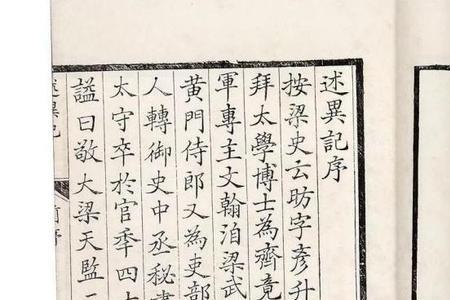 述異記序
按梁史云昉字彥升
拜太學博士為齊竟
軍專主文翰洎梁武
黃門侍郎又為吏部
人轉御史中丞秘書
太守卒於官年四十
謚曰敬大梁天監二
述異記